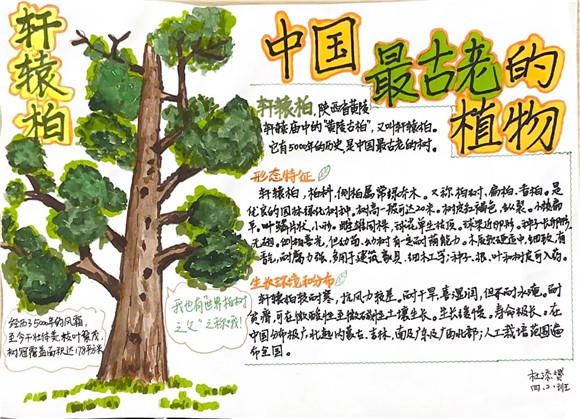 轩辕柏
中国
最古老的
植物
轩辕柏,陕西省黄陵
轩辕庙中的"黄陵古柏",又叫轩辕柏。
它有5000年的历史,是中国最古老的树。
形态特征
轩辕柏,柏科,侧柏属常绿乔木。又称柏树、扁柏、香柏。是
优良的园林绿化树种。树高一般可达20米。树皮红褐色,纵裂。小枝扁
平。叶鳞片状,小形。雌雄同株,球花单生枝顶。球果近卵形。种子长卵形,
无翅。侧柏喜光,但幼苗、幼树有一定耐荫能力。木质软硬适中,细致,有
香气,耐腐力强,多用于建筑、家具、细木工等;种子、根、叶和树皮可入药。
生长环境和分布
轩辕柏较耐寒,抗风力较差。耐干旱,喜湿润,但不耐水淹。耐
贫瘠,可在微酸性至微碱性土壤生长。生长缓慢,寿命极长。在
中国分布极广,北起内蒙古、吉林,南及广东及广西北部;人工栽培范围遍
布全国。
我也有"世界柏树
之父"之称哦!
经历了5000年的风霜,
至今干壮体美、枝叶繁茂,
树冠覆盖面积达178平方米
四.2.班